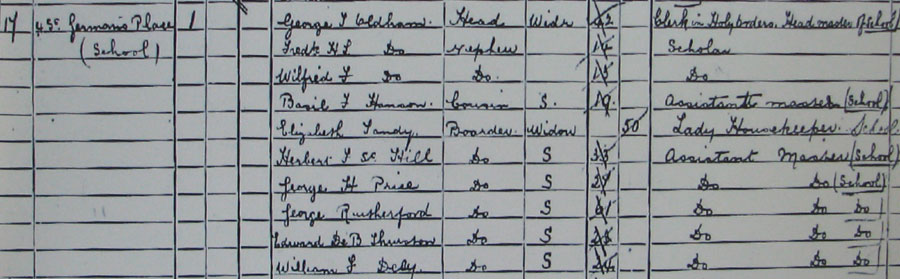 17 4 St. Germans Place 1 George T Oldham Head Widr 42 Clerk in Holy Orders. Head master of School
(School) Fredk H L Do Nephew 14 Scholar
Wilfred T Do Do. 13 Do
Basil T Hanson. Cousin S. 19 Assistant master (School)
Elizabeth Tandy, Boarder. Widow 50 Lady Housekeeper. School
Herbert T St Hill Do S Assistant Master (School)
George H Price Do S Do Do (School)
George Rutherford Do S Do Do Do
Edward De B Thurston Do S Do Do Do
William F Do S Do Do Do